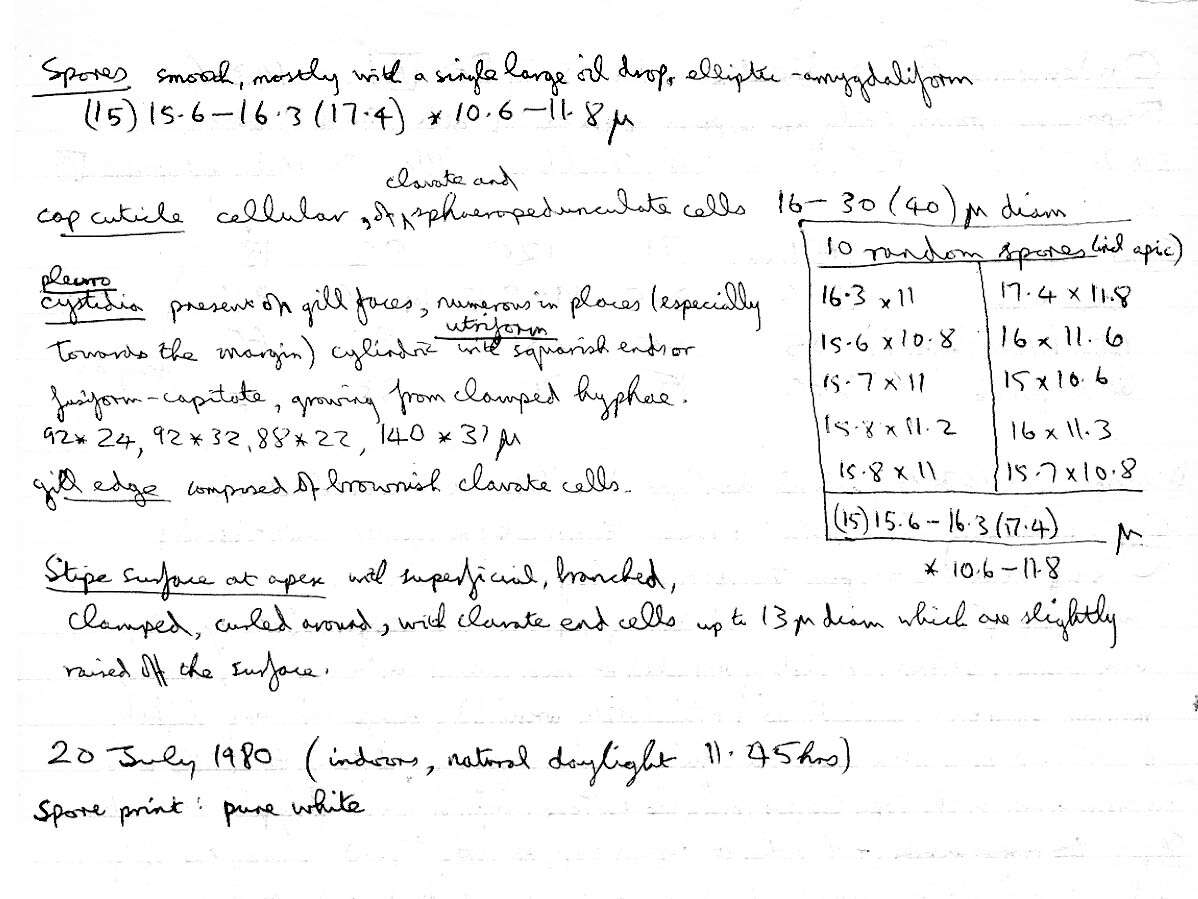 Spores smooth, mostly with a single large oil drop, elliptic-amygdaliform
(15) 15.6-16.3 (17.4) * 10.6-11.8 μ
clavate and
cap cuticle cellular, of ^ sphaeropedunculate cells 16-30 (40) μ diam
pleuro
cystidia present on gill faces, numerous in places (especially
utriform
towards the margin) cylindric with squarish ends or
fusiform-capitate, growing from clamped hyphae.
92*24, 92*32, 88*22, 140*37 μ
gill edge composed of brownish clavate cells.
10 random spores (incl apic)
16.3 x 11 17.4 x 11.8
15.6 x 10.8 16 x 11.6
15.7 x 11 15 x 10.6
15.8 x 11.2 16 x 11.3
15.8 x 11 15.7 x 10.8
(15) 15.6-16.3 (17.4) μ
* 10.6-11.8
Stipe surface at apex with superficial, branched,
clamped, curled around, with clavate end cells up to 13 μ diam which are slightly
raised off the surface.
20 July 1980 (indoors, natural daylight 11.45hrs)
Spore print: pure white